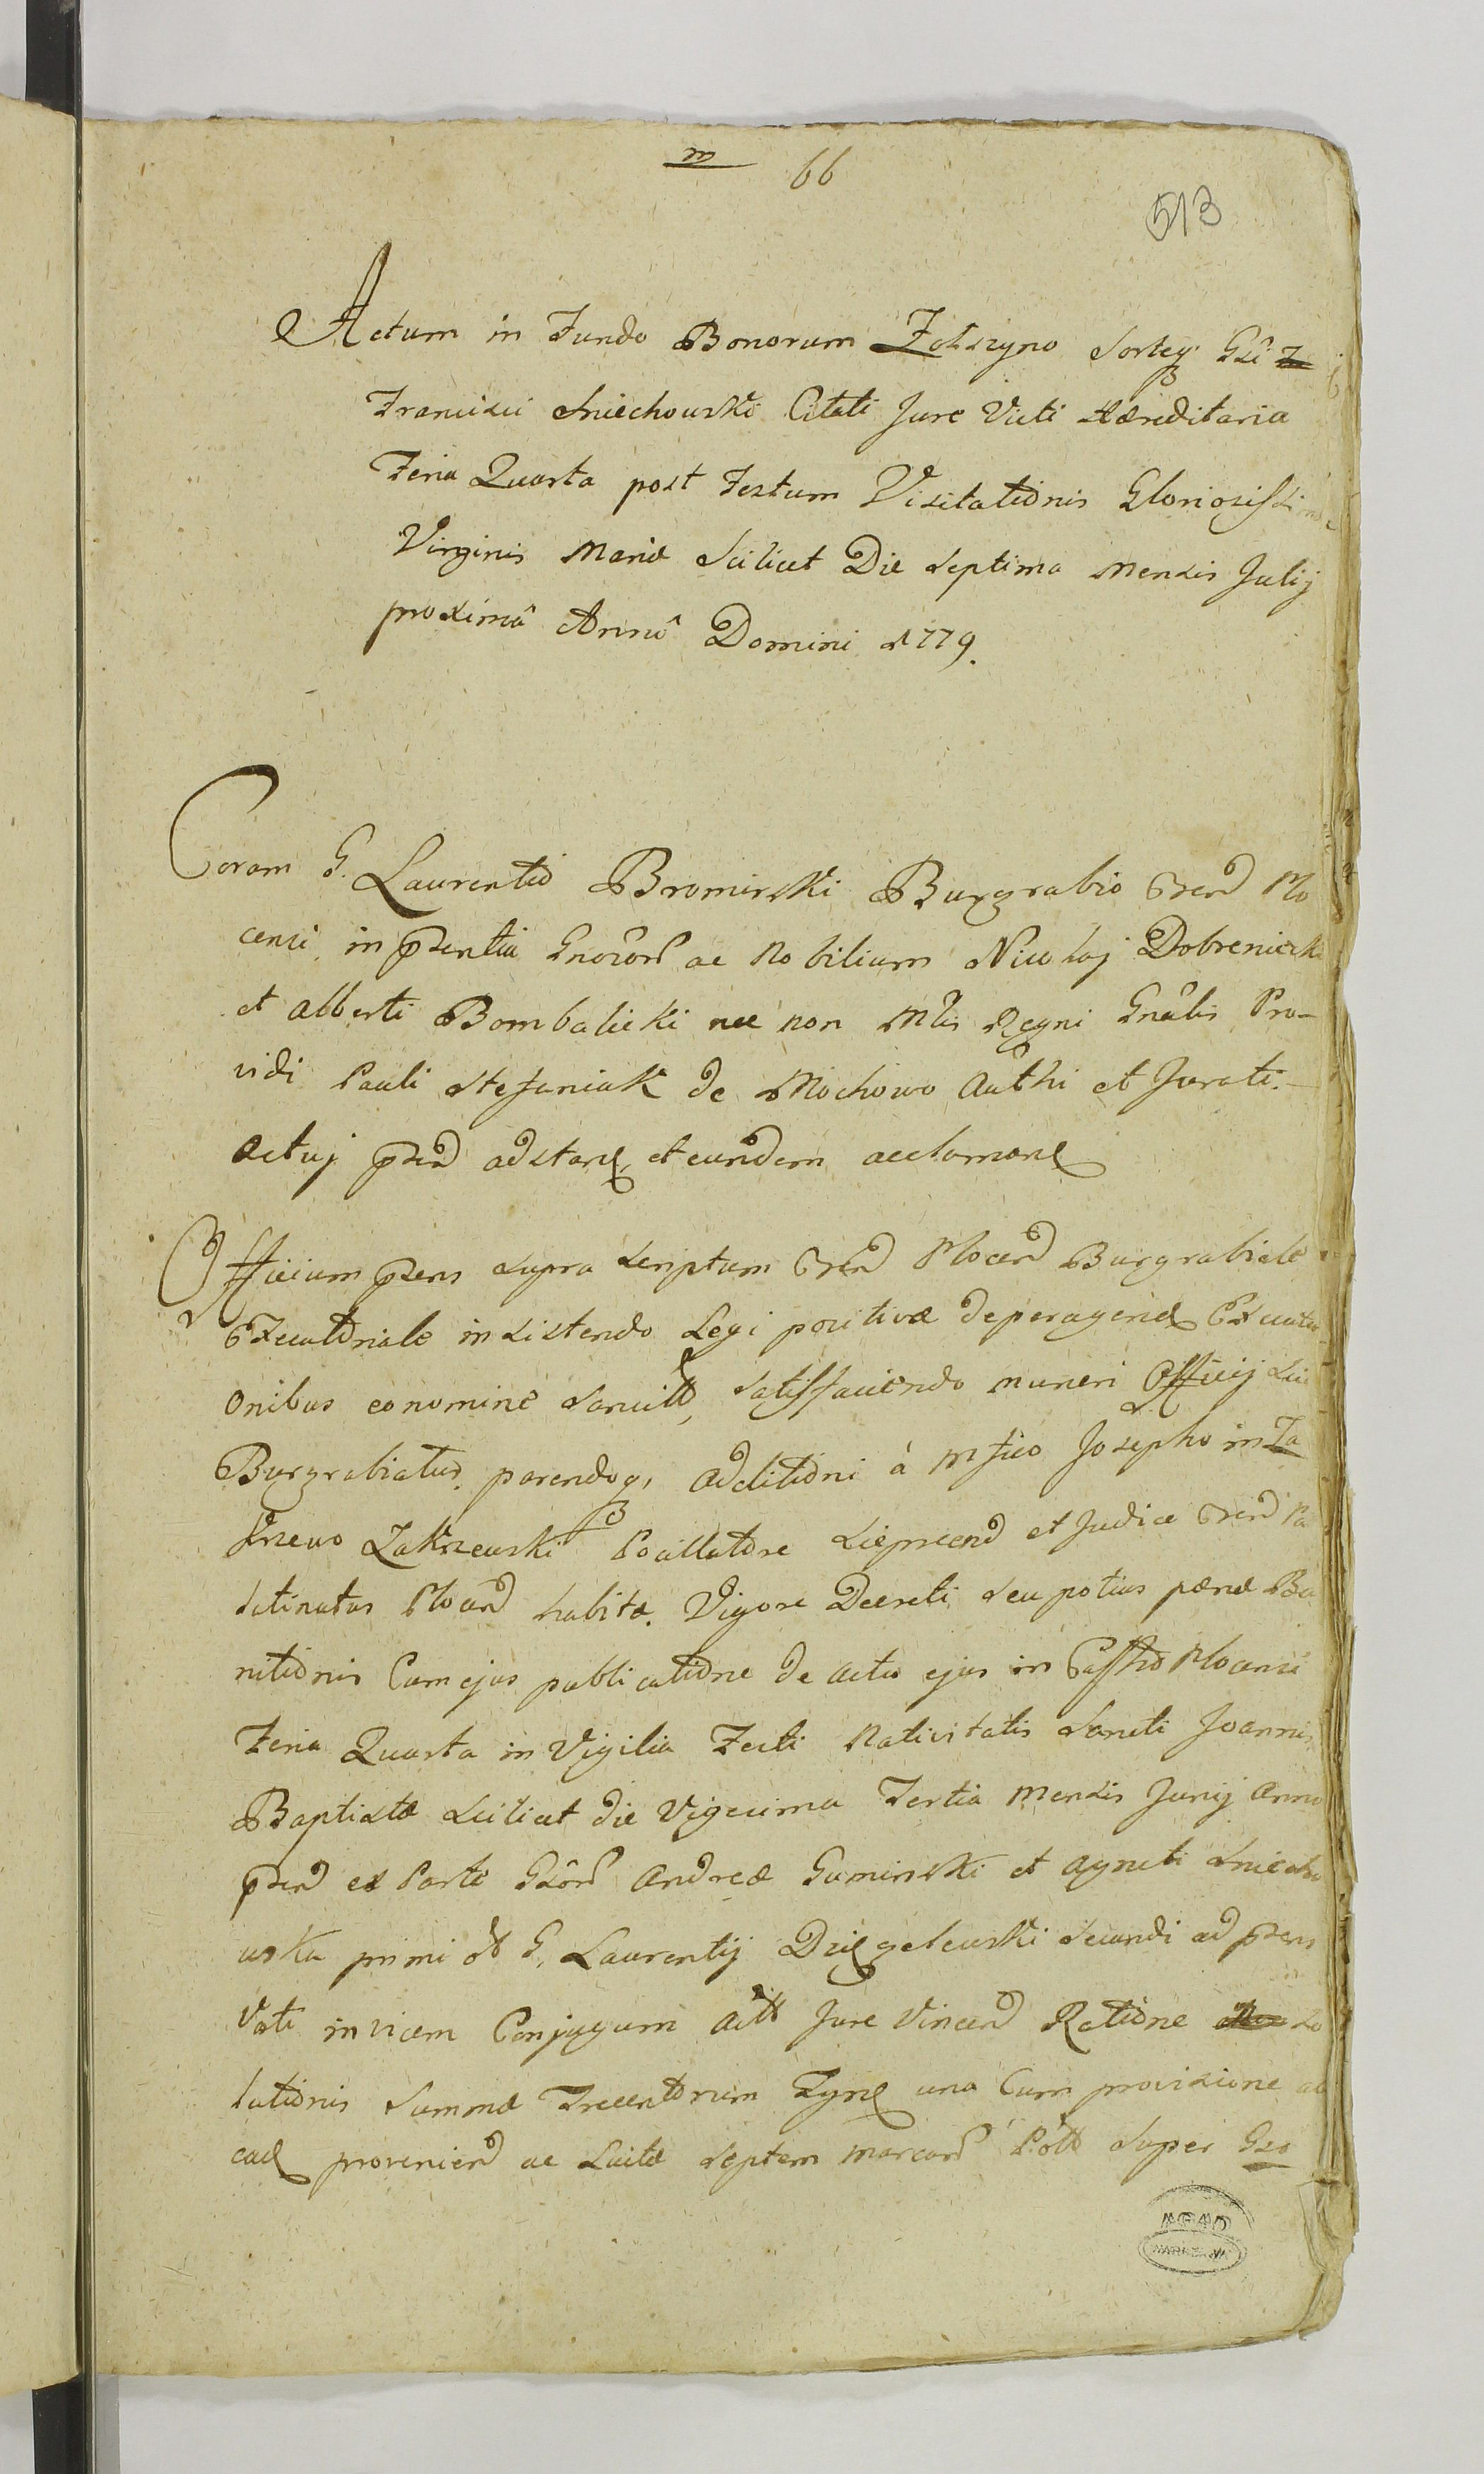 m 66
513
Actum in Fundo Bonorum Zolszyno Sortey Gsi
Francisci Sniechowski Citati Jure Victi Hæreditaria
Feria Quarta post Festum Visitationis Gloriosissimæ
Virginis Mariæ Scilicet Die Septima Mensis Julij
proximâ Annô Domini 1779.
Coram G. Laurentio Bromirski Burgrabio Tren Plo
censi in pzentia Gnosorum ac Nobilium Nicolaj Dobrenieck
et Alberti Bombalicki nec non Mlis Regni Gnâlis Pro-
vidi Pauli Stefaniak de Mochowo Authi et Jurati.
Actuj pzen adstan, et eundem acclaman
Officium pzens supra scriptum Tren Plocen Burgrabiale
Executoriale insistendo Legi positivæ de peragend Executi
onibus eo nomine Sancitt, satisfaciendo muneri Officij sui
Burgrabiatus. parendoq, Additioni â Mfico Josepho in Za
krzewo Zakrzewski Pocillatore Sieprcen et Judice Tren Pa
latinatus Plocen habitæ. Vigore Decreti, seu potius pænæ Ba
nitionis Cum ejus publicatione de actu ejus in Castro Plocensi
Feria Quarta in Vigilia Festi Nativitatis Sancti Joannis
Baptistæ Scilicet die Vigesima Tertia Mensis Junij Anno
pzen ex Parte Gsorum Andreæ Guminski et Agneti Sniecho
wska primi ot G. Laurentij Dzięgelewski secundi ad pzens
Voti invicem Conjugum Actt Jure Vincen Ratione So
lutionis Summæ Trecentorum Tynf una Cum provisione ab
ead provenien ac Luitæ Septem marcarum Pott super Gso
AGAD
WARSZAWA